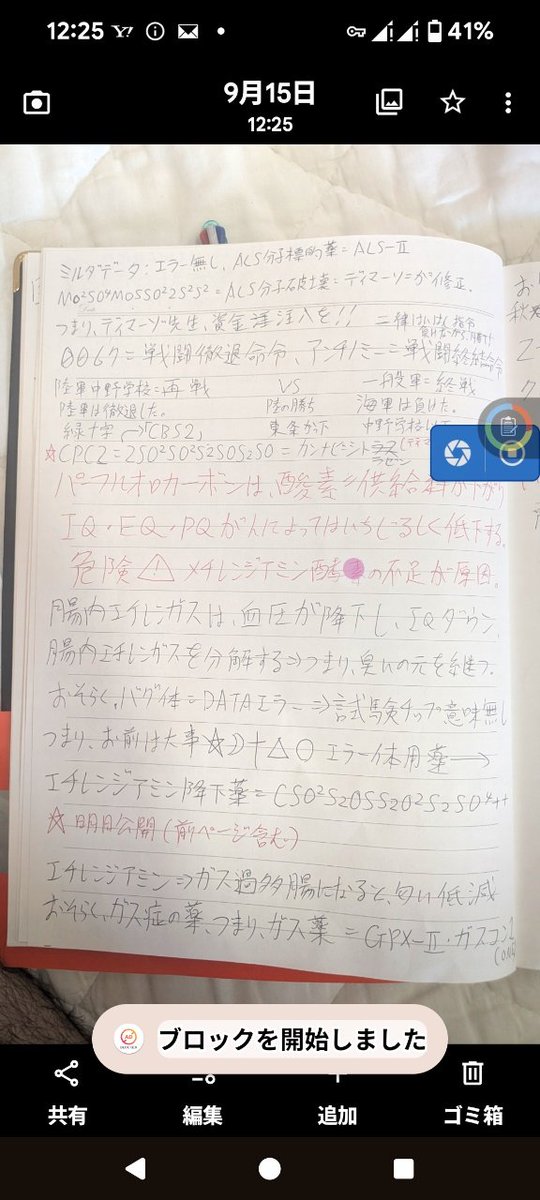 12:25
41%
9月15日
12:25
ミルダデータ:エラー無し、ALS分子標的薬=ALS-Ⅱ
Mo²SO⁴MoSSO²2S²S²=ALS分子破壊=ディマーソニが修正.
つまり、ディマーソ先生、資金 注入を!!
二律はいはん指令
006ク=戦闘徹退命令、アンチノミー=戦闘終結命令
陸軍中野学校=再戦 VS 一般軍=終戦
陸軍は徹退した。 陸の勝ち 海軍は負けた。
緑十字 「CBS2」 東条が下 中野学校
☆CPC2=2SO²SO²S2SOS2SO=カンナビミント
パーフルオロカーボンは、酸素 供給 が下がり
IQ・EQ・PQがんによってはいちじるしく低下する。
危険⚠ メチレンジアミン酵 の不足が原因。
腸内エチレンガスは、血圧が降下し、IQダウン、
腸内エチレンガスを分解する⇒つまり、臭いの元を継つ。
おそらく、バグ体=DATAエラー⇒試験チップ意味無し
つまり、お前は大事☆☽†△○ エラー体用薬→
エチレンジアミン降下薬=CSO²S2OSS2O²S2SO⁴++
☆明日公開(前ページ含む)
エチレンジアミン⇒ガス過多腸になると、匂い低減
おそらく、ガス症の薬、つまり、ガス薬=GPX-Ⅱ・ガスコン
ブロックを開始しました
共有
編集
追加
ゴミ箱